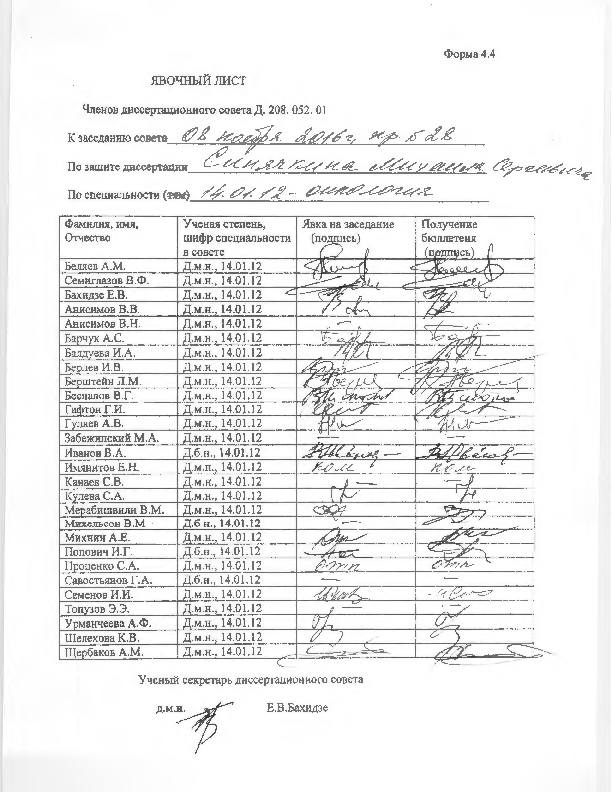 Форма 4.4
ЯВОЧНЫЙ ЛИСТ
Членов диссертационного совета Д. 208. 052. 01
К заседанию совета 08 ноября 2016г, пр. № 28
По защите диссертации Синячкина Михаила Сергеевича
По специальности (там) 14.01.12 - онкология
Фамилия, имя, Отчество Ученая степень, шифр специальности в совете Явка на заседание (подпись) Получение бюллетеня (подпись)
Беляев А.М. Д.м.н., 14.01.12
Семиглазов В.Ф. Д.м.н., 14.01.12
Бахидзе Е.В. Д.м.н., 14.01.12
Анисимов В.В. Д.м.н., 14.01.12
Анисимов В.Н. Д.м.н., 14.01.12 —
Барчук А.С. Д.м.н., 14.01.12
Балдуева И.А. Д.м.н., 14.01.12
Берлев И.В. Д.м.н., 14.01.12
Берштейн Л.М. Д.м.н., 14.01.12
Беспалов В.Г. Д.м.н., 14.01.12
Гафтон Г.И. Д.м.н., 14.01.12
Гуляев А.В. Д.м.н., 14.01.12
Забежинский М.А. Д.м.н., 14.01.12 — —
Иванов В.А. Д.б.н., 14.01.12
Имянитов Е.Н. Д.м.н., 14.01.12
Канаев С.В. Д.м.н., 14.01.12 — —
Кулева С.А. Д.м.н., 14.01.12
Мерабишвили В.М. Д.м.н., 14.01.12
Михельсон В.М Д.б.н., 14.01.12 —
Михнин А.Е. Д.м.н., 14.01.12
Попович И.Г. Д.б.н., 14.01.12
Проценко С.А. Д.м.н., 14.01.12
Савостьянов Г.А. Д.б.н., 14.01.12 — —
Семенов И.И. Д.м.н., 14.01.12
Топузов Э.Э. Д.м.н., 14.01.12 — —
Урманчеева А.Ф. Д.м.н., 14.01.12
Шелехова К.В. Д.м.н., 14.01.12
Щербаков А.М. Д.м.н., 14.01.12
Ученый секретарь диссертационного совета
д.м.н. Е.В.Бахидзе